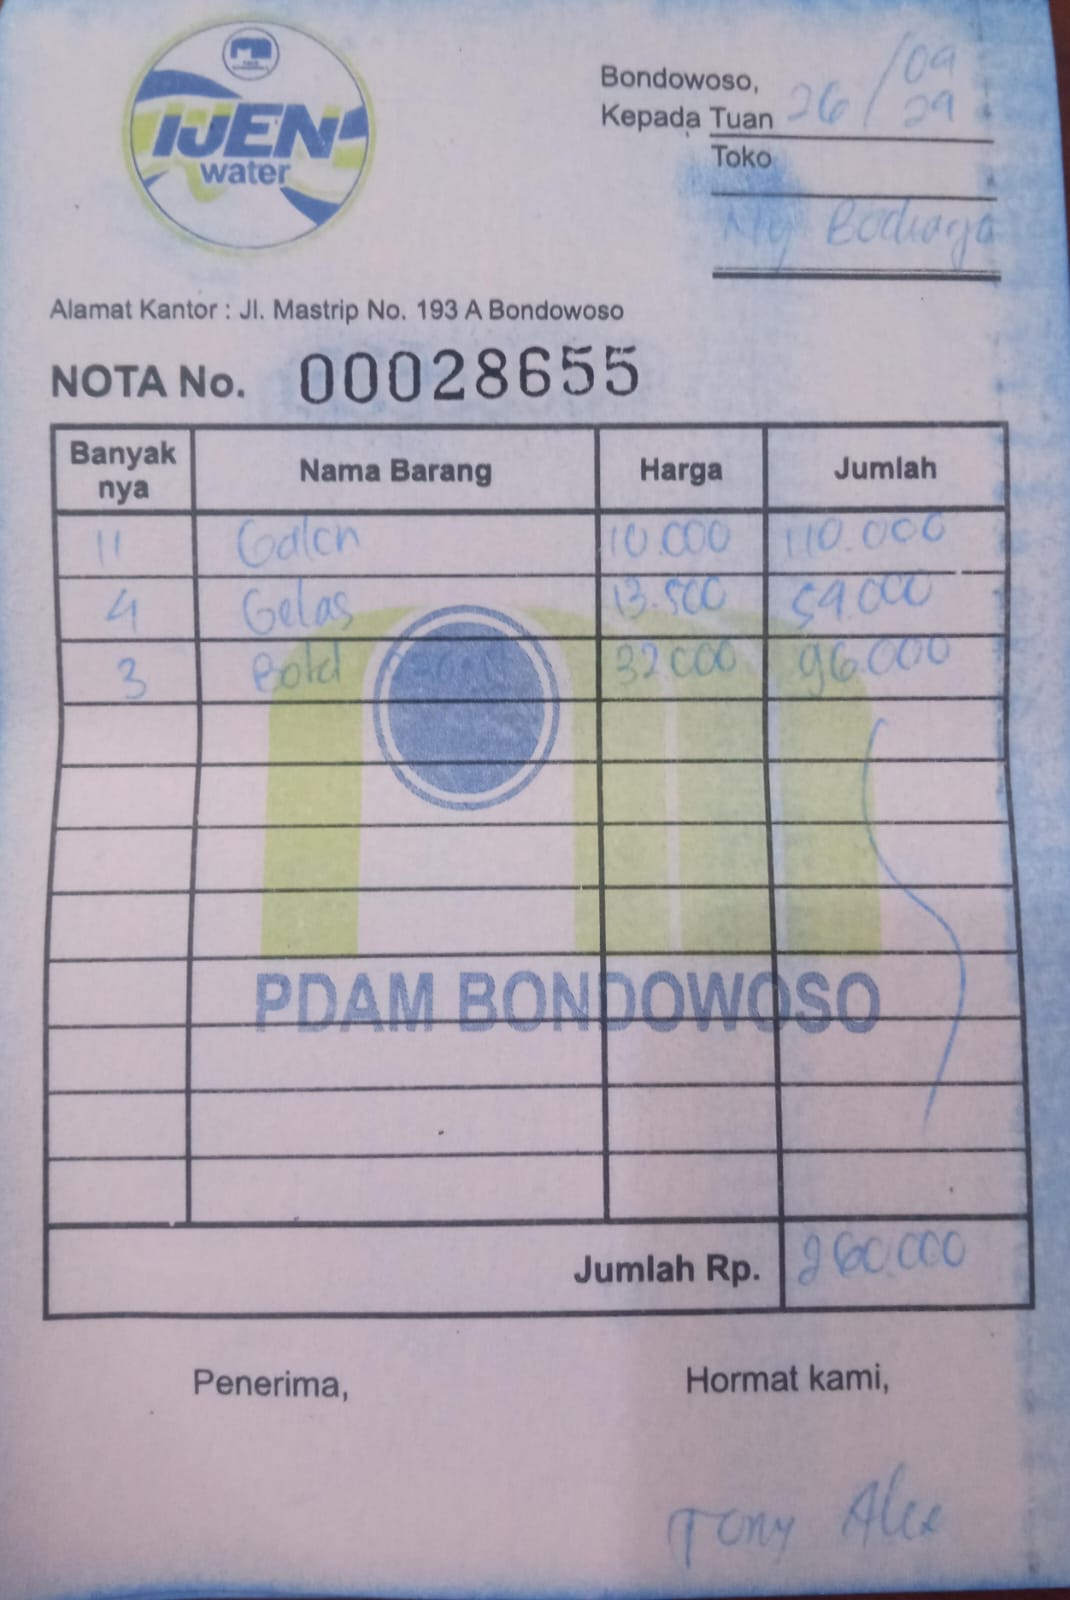 IJEN
water
Bondowoso, 26/09
Kepada Tuan 29
Toko
My
Alamat Kantor : Jl. Mastrip No. 193 A Bondowoso
NOTA No. 00028655
Banyak nya Nama Barang Harga Jumlah
11 Galon 10.000 110.000
4 Gelas 13.500 54.000
3 Botol 32.000 96.000
PDAM BONDOWOSO
Jumlah Rp. 260.000
Penerima, Hormat kami,
Tony Alex